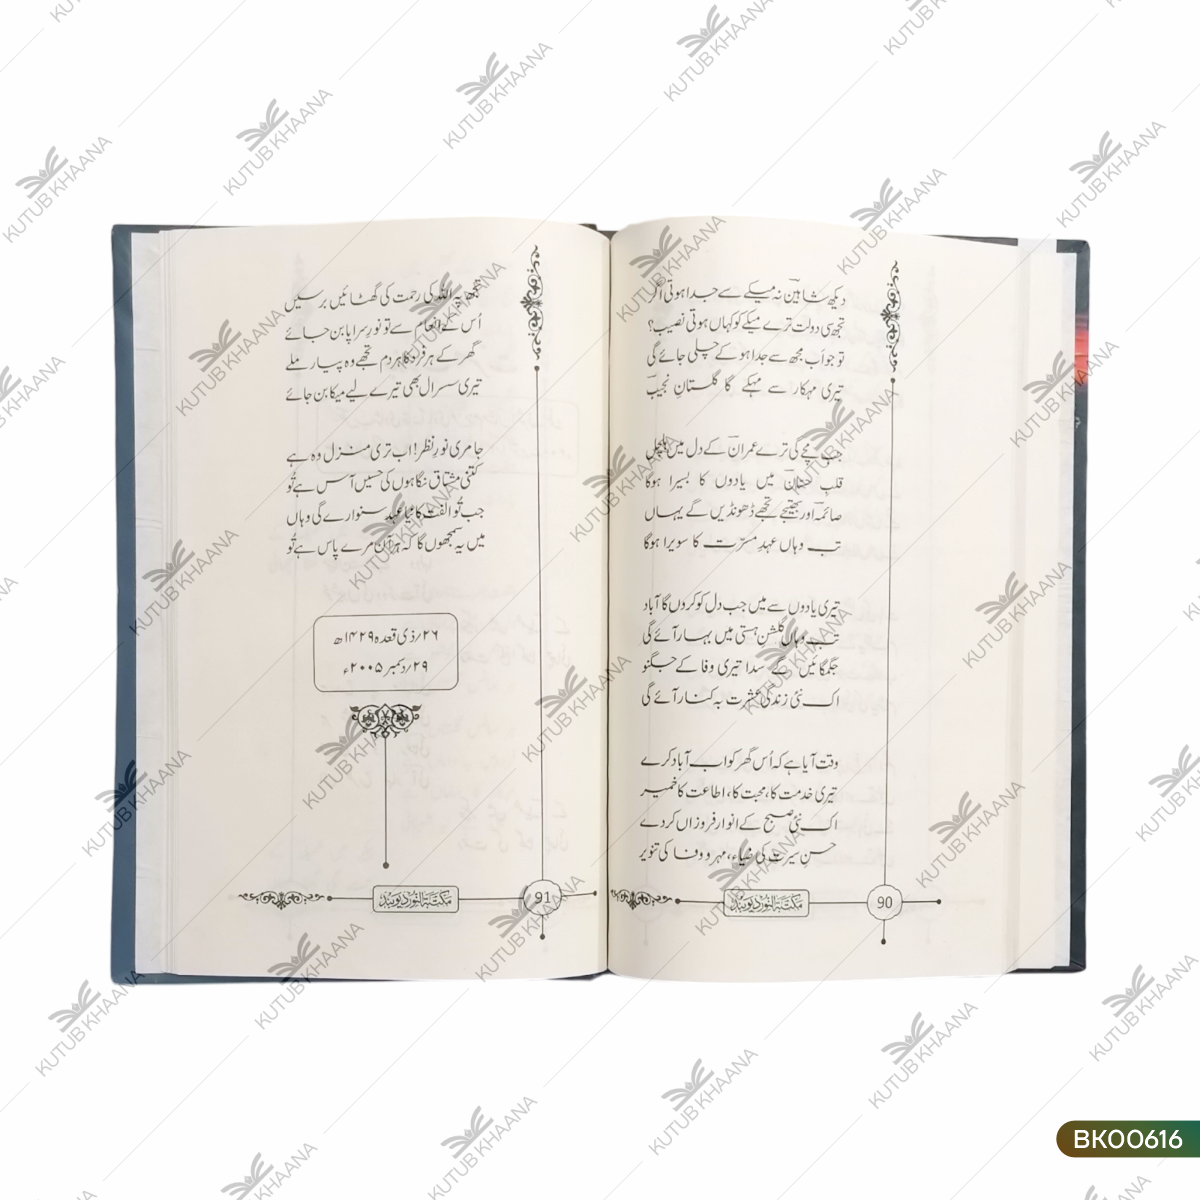 دیکھ شاہین نہ میکے سے جدا ہوتی اگر
تجھ سی دولت ترے میکے کو کہاں ہوتی نصیب؟
تو جو اَب مجھ سے جدا ہو کے چلی جائے گی
تیری مہکار سے مہکے گا گلستانِ نجیب
جب مچے گی ترے عمران کے دل میں ہلچل
قلبِ حسّان میں یادوں کا بسیرا ہوگا
صائمہ اور بھتیجے تجھے ڈھونڈیں گے یہاں
تب وہاں عہدِ مسرّت کا سویرا ہوگا
تیری یادوں سے میں جب دل کو کروں گا آباد
تب وہاں گلشنِ ہستی میں بہار آئے گی
جگمگائیں گے سدا تیری وفا کے جگنو
اک نئی زندگی عشرت بہ کنار آئے گی
وقت آیا ہے کہ اُس گھر کو اب آباد کرے
تیری خدمت کا، محبت کا، اطاعت کا خمیر
اک نئی صبح کے انوار فروزاں کر دے
حسنِ سیرت کی ضیاء، مہر و وفا کی تنویر
مکتبۃ النور دیوبند
90
تجھ پہ اللہ کی رحمت کی گھٹائیں برسیں
اُس کے انعام سے تو نورِ سراپا بن جائے
گھر کے ہر فرد کا ہر دم تجھے وہ پیار ملے
تیری سسرال بھی تیرے لیے میکا بن جائے
جا مری نورِ نظر! اب تری منزل وہ ہے
کتنی مشتاق نگاہوں کی حسیں آس ہے تُو
جب تُو الفت کا نیا عہد سنوارے گی وہاں
میں یہ سمجھوں گا کہ ہر آن مرے پاس ہے تُو
۲۶؍ذی قعدہ ۱۴۲۹ھ
۲۹؍دسمبر ۲۰۰۵ء
مکتبۃ النور دیوبند
91
KUTUB KHAANA
BK00616